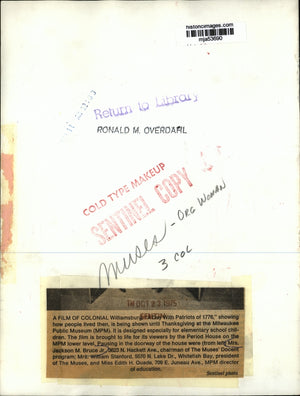 historicimages.com
mja53690
Return to Library
RONALD M. OVERDAHL
COLD TYPE MAKEUP
SENTINEL COPY
Muses - ORG WOMAN
3 COL
OCT 23 1975
SENTINEL
A FILM OF COLONIAL Williamsburg, "With Patriots of 1776," showing
how people lived then, is being shown until Thanksgiving at the Milwaukee
Public Museum (MPM). It is designed especially for elementary school chil-
dren. The film is brought to life for its viewers by the Period House on the
MPM lower level. in the doorway of the house were (from left) Mrs.
Jackson M. Bruce Jr., N. Hackett Ave., chairman of The Muses' Docent
program; Mrs. William Stanford, 5570 N. Lake Dr., Whitefish Bay, president
of The Muses, and Miss Edith H. Quade, 709 E. Juneau Ave., MPM director
of education.
Sentinel photo